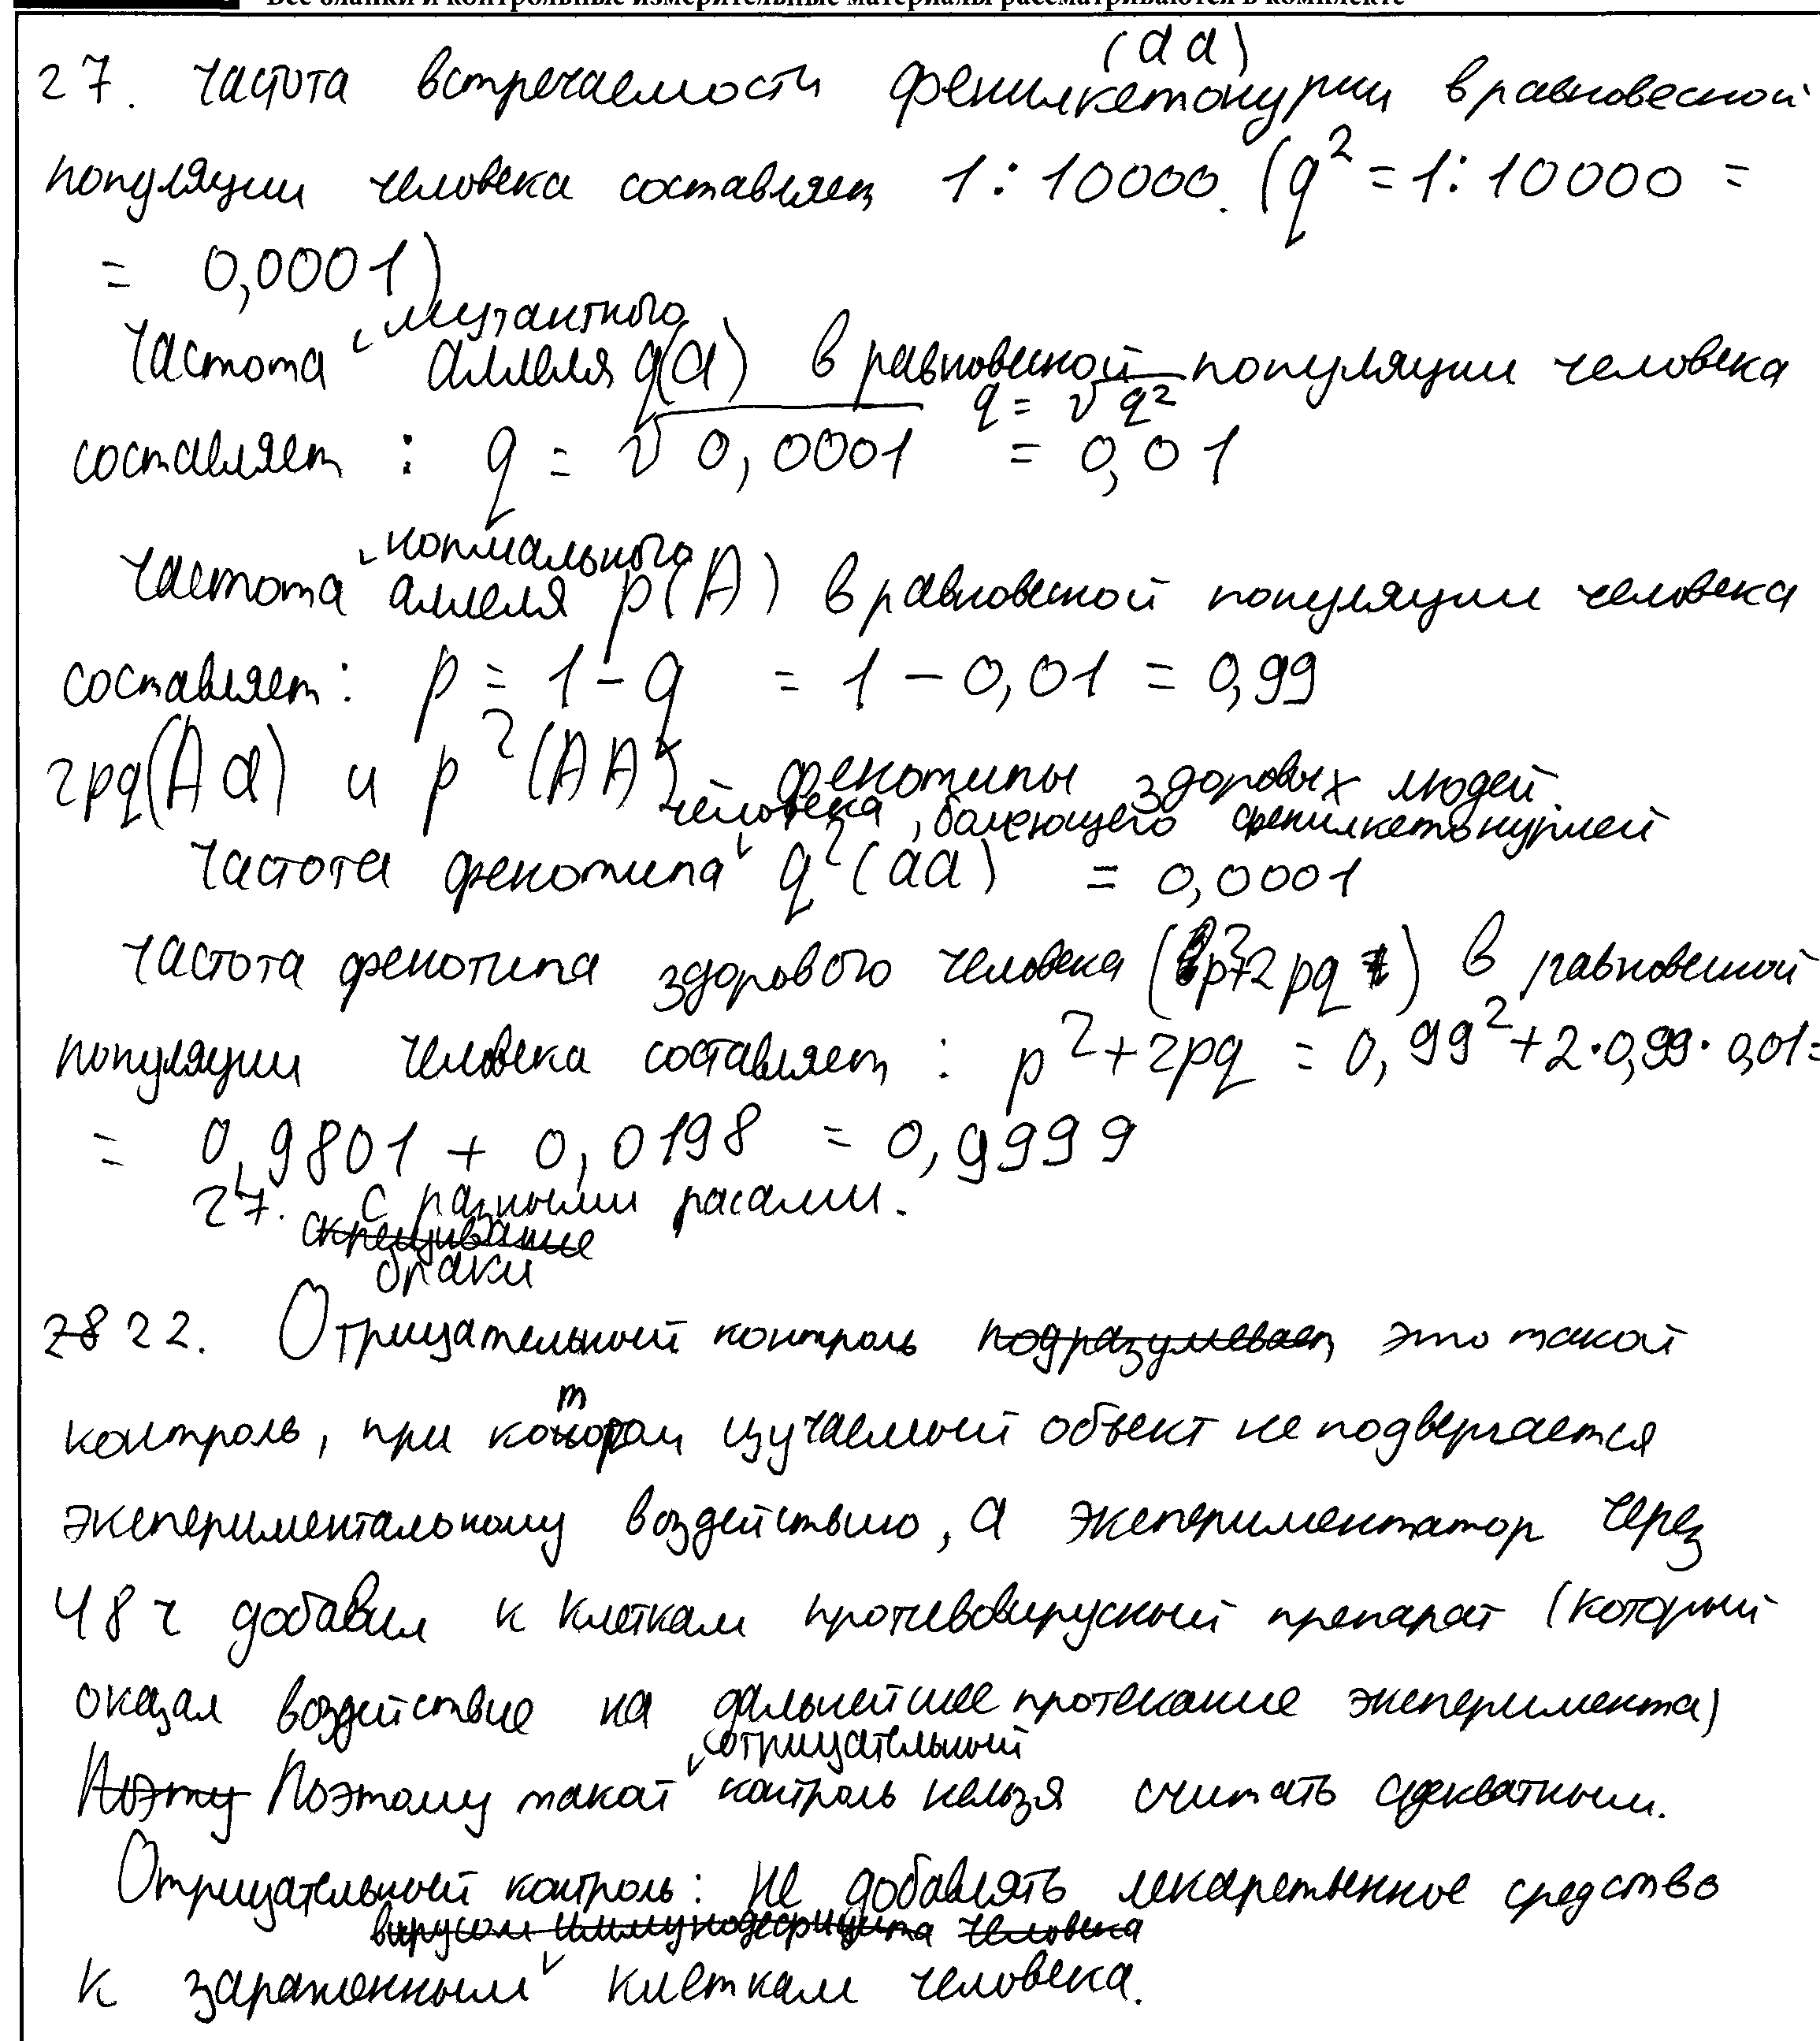 Все бланки и контрольные измерительные материалы рассматриваются в комплекте
(aa)
27. Частота встречаемости фенилкетонурии в равновесной
популяции человека составляет 1:10000. (q² = 1:10000 =
= 0,0001)
мутантного
Частота аллеля q(a) в равновесной популяции человека
q = √q²
составляет : q = √0,0001 = 0,01
нормального
Частота аллеля p(A) в равновесной популяции человека
составляет: p = 1 - q = 1 - 0,01 = 0,99
2pq(Aa) и p²(AA) фенотипы здоровых людей.
человека, болеющего фенилкетонурией
Частота фенотипа q²(aa) = 0,0001
Частота фенотипа здорового человека (p²+2pq) в равновесной
популяции человека составляет : p²+2pq = 0,99²+2·0,99·0,01=
= 0,9801 + 0,0198 = 0,9999
27. с разными расами.
скрещивание
браки
28 22. Отрицательный контроль подразумевает это такой
контроль, при котором изучаемый объект не подвергается
экспериментальному воздействию, а экспериментатор через
48 ч добавил к клеткам противовирусный препарат (который
оказал воздействие на дальнейшее протекание эксперимента)
отрицательный
Поэту Поэтому такой контроль нельзя считать адекватным.
Отрицательный контроль: не добавлять лекарственное средство
вирусом иммунодефицита человека
к зараженным клеткам человека.